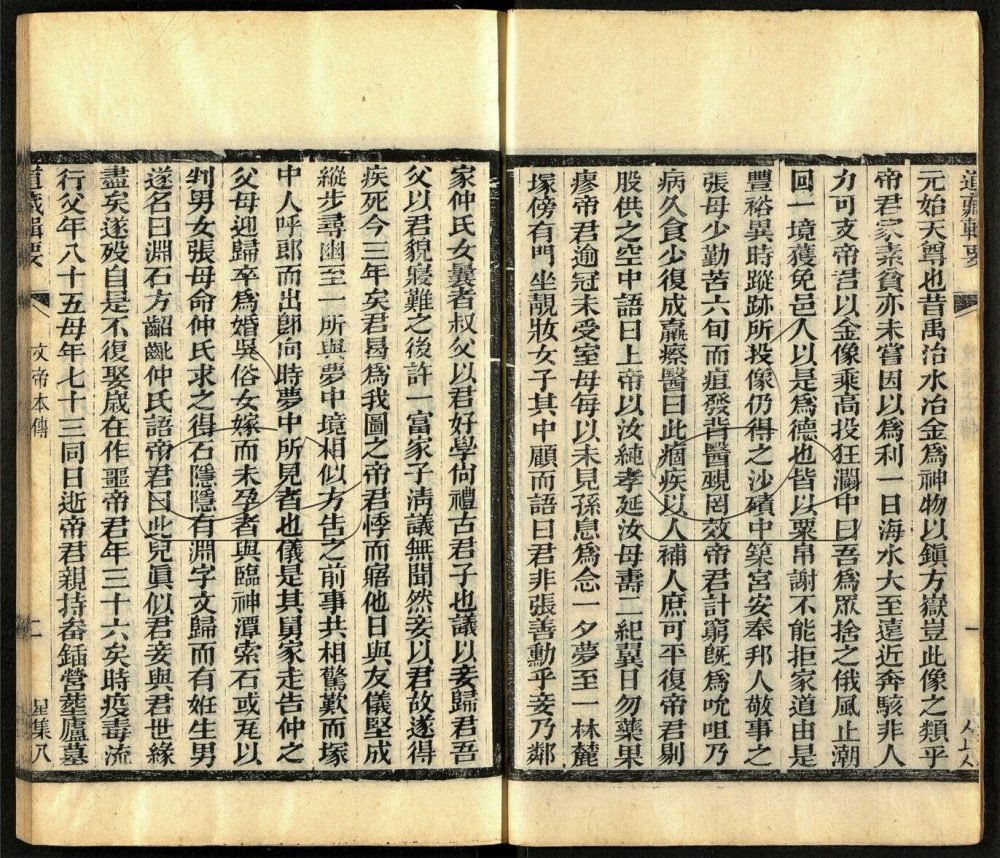 道藏輯要
元始天尊也昔禹治水冶金爲神物以鎭方嶽豈此像之類乎
帝君家素貧亦未嘗因以爲利一日海水大至遠近奔駭非人
力可支帝君以金像乘高投狂瀾中曰吾爲眾捨之俄風止潮
回一境獲免邑人以是爲德也皆以粟帛謝不能拒家道由是
豐裕異時蹤跡所投像仍得之沙磧中築宮安奉邦人敬事之
張母少勤苦六旬而疽發背醫覡罔效帝君計窮旣爲吮咀乃
病久食少復成羸瘵醫曰此痼疾以人補人庶可平復帝君剔
股供之空中語曰上帝以汝純孝延汝母壽二紀翼日勿藥果
瘳帝君逾冠未受室母每以未見孫息爲念一夕夢至一林麓
塚傍有門坐靚妝女子其中顧而語曰君非張善勳乎妾乃鄰
家仲氏女曩者叔父以君好學尙禮古君子也議以妾歸君吾
父以君貌寢難之後許一富家子淸議無聞然妾以君故遂得
疾死今三年矣君曷爲我圖之帝君悸而寤他日與友儀堅成
縱步尋幽至一所與夢中境相似方告之前事共相驚歎而塚
中人呼郎而出卽向時夢中所見者也儀是其舅家走告仲之
父母迎歸卒爲婚吳俗女嫁而未孕者與臨神潭索石或瓦以
判男女張母命仲氏求之得石隱隱有淵字文歸而有姙生男
遂名曰淵石方齠齔仲氏語帝君曰此兒眞似君妾與君世緣
盡矣遂歿自是不復娶歲在作噩帝君年三十六矣時疫毒流
行父年八十五母年七十三同日逝帝君親持畚鍤營塟廬墓
道藏輯要 文帝本傳 二 星集八